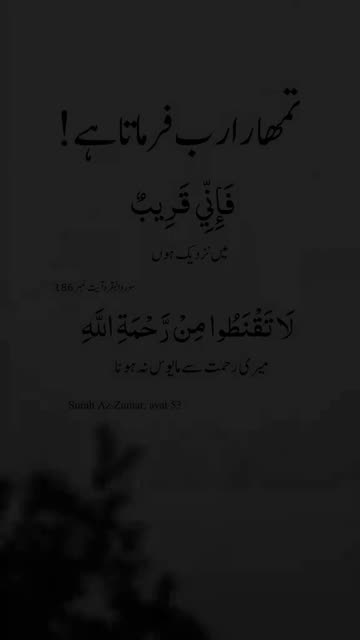 تمھارا رب فرماتا ہے!
فَإِنِّي قَرِيبٌ
میں نزدیک ہوں
سورۃ البقرہ آیت نمبر 186
لَا تَقْنَطُوا مِنْ رَّحْمَةِ اللَّهِ
میری رحمت سے مایوس نہ ہونا
Surah Az-Zumar, ayat 53